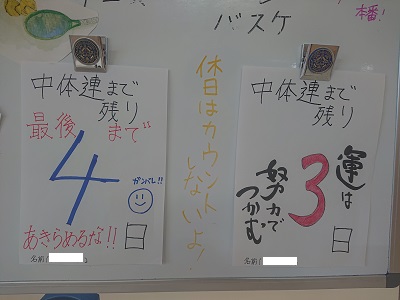 バスケ
本番!
中体連まで
残り
最後まで
4
ガンバレ!!
あきらめるな!!
日
名前(
休日はカウント
しないよ!
中体連まで
残り
3
運は
努力で
つかむ
日
名前(